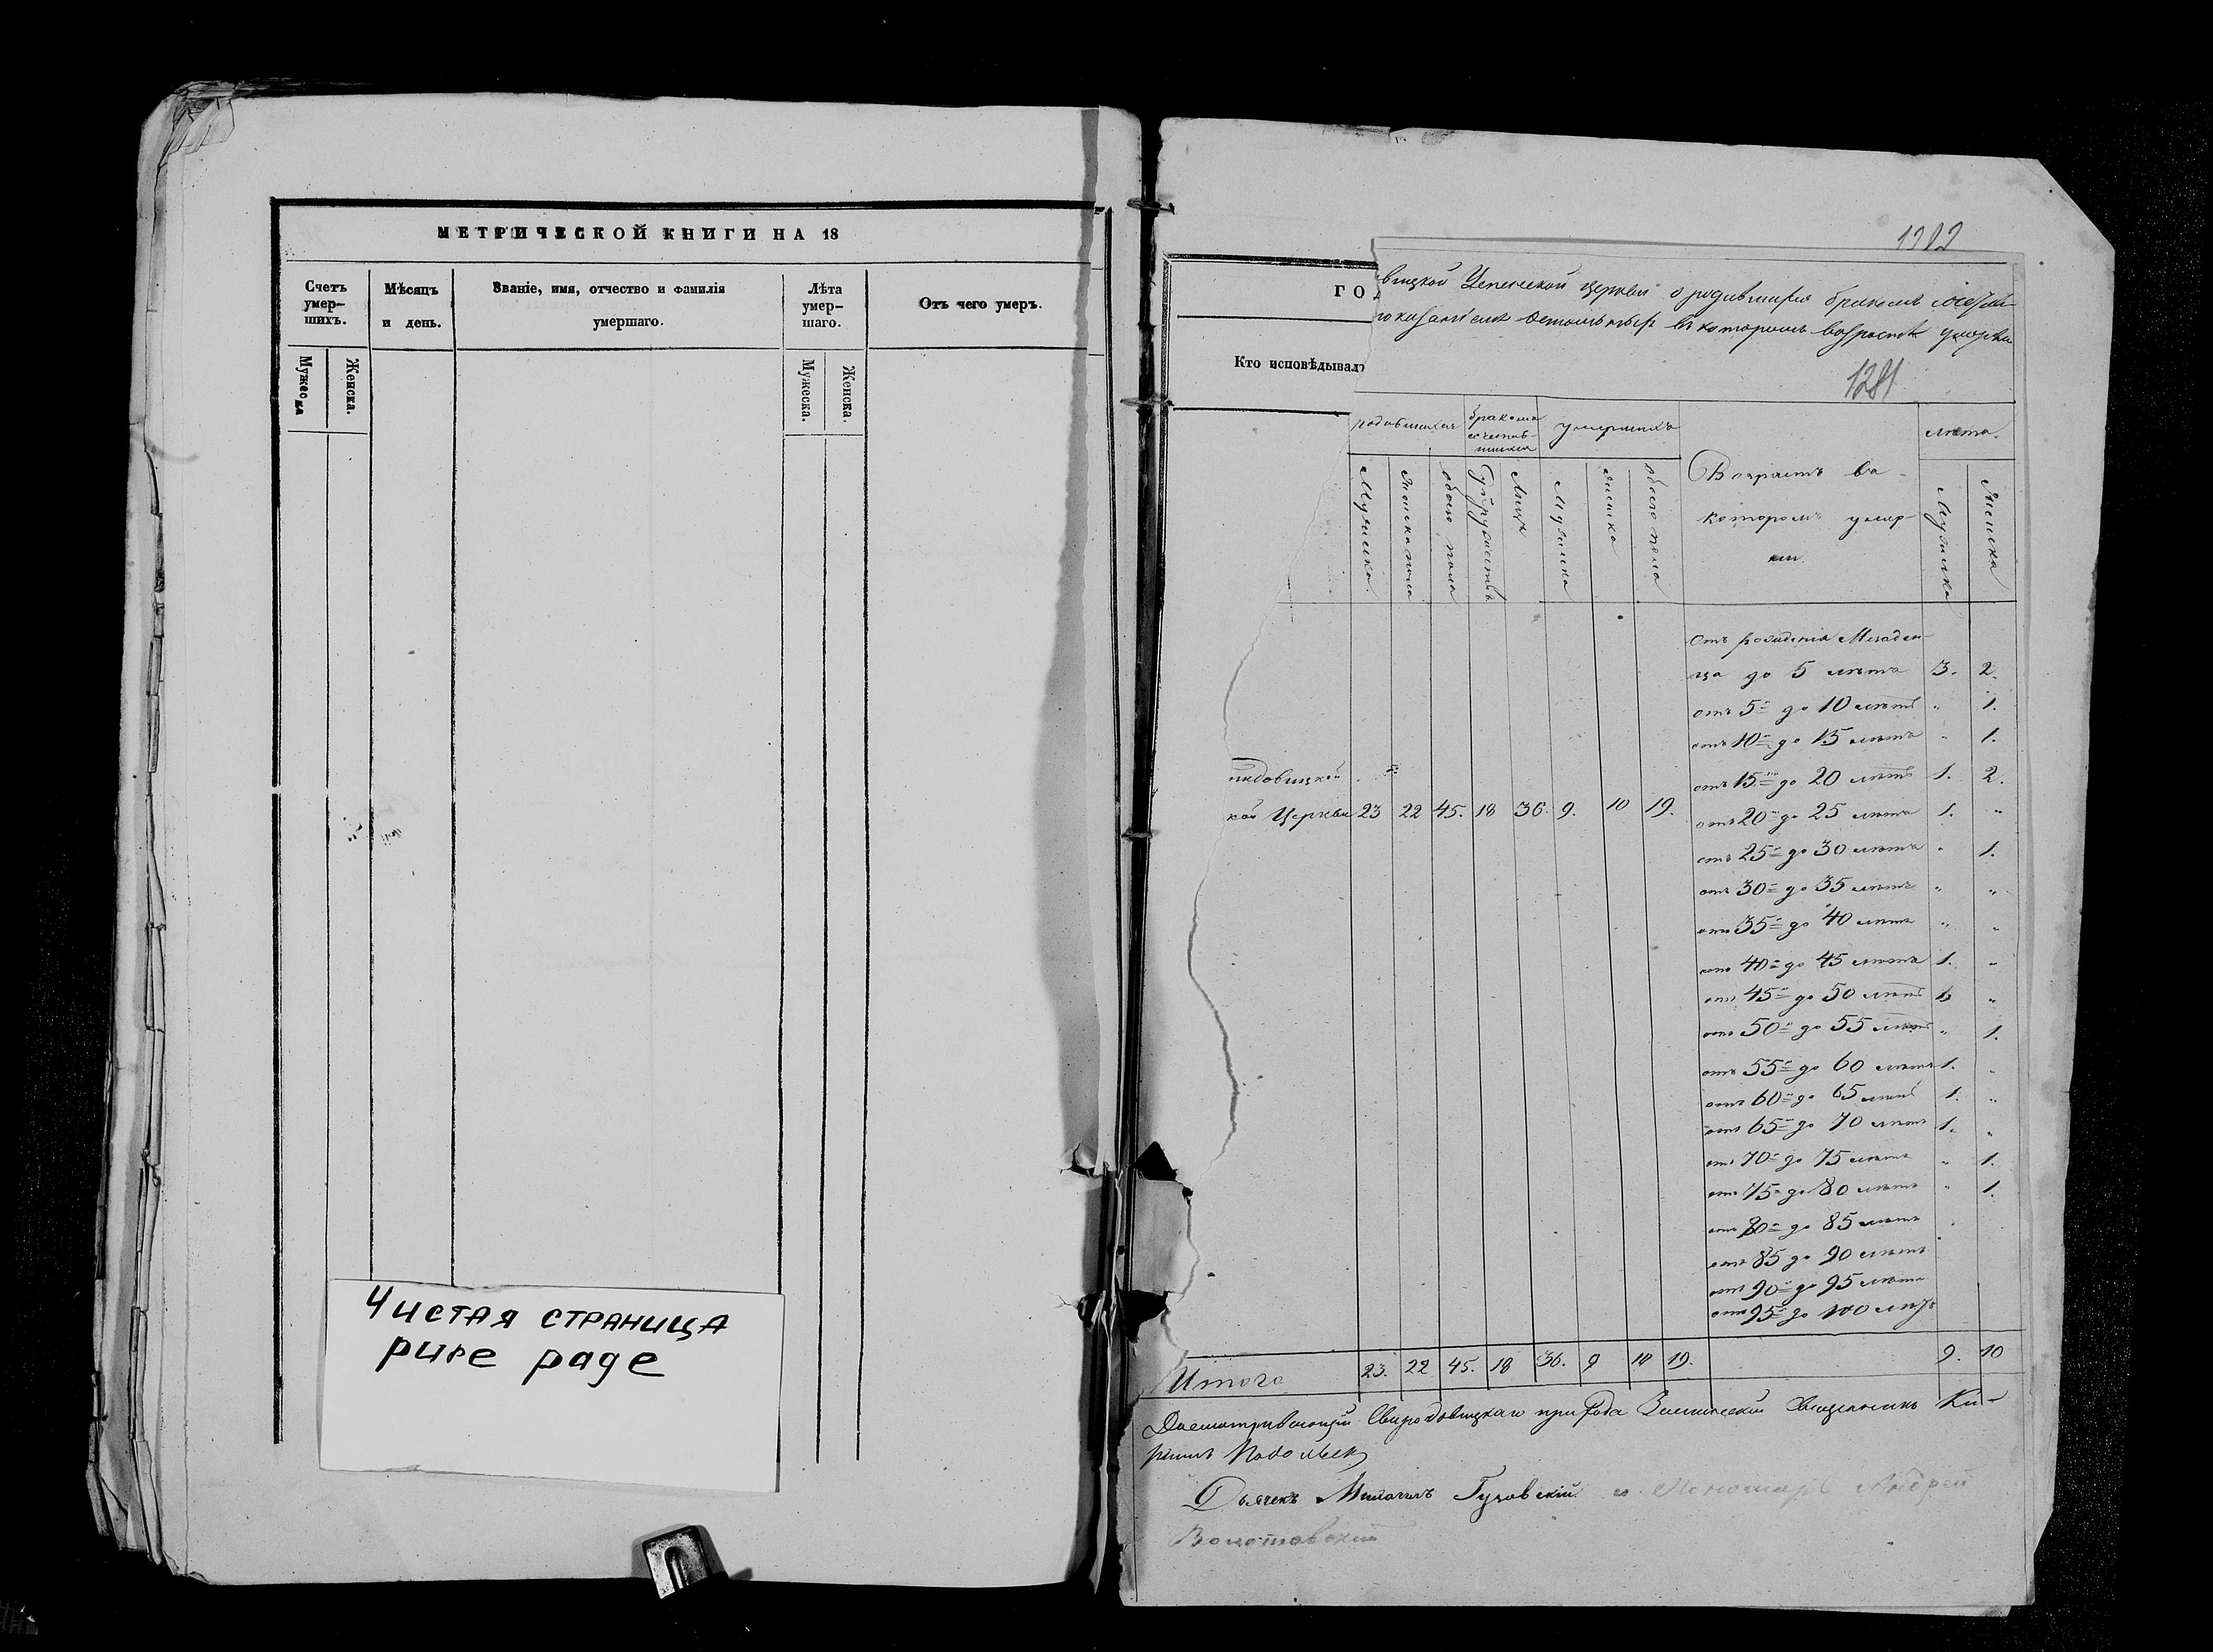 МЕТРИЧЕСКОЙ КНИГИ НА 18
Счетъ умер-шихъ.
Мѣсяцъ и день.
Званіе, имя, отчество и фамилія умершаго.
Лѣта умер-шаго.
Отъ чего умеръ.
Мужеска
Женска.
Мужеска.
Женска.
Чистая страница
pure page
1282
ГОД
Кто исповѣдывалъ
вицкой Успенской церкви о родившихся бракомъ
въ которомъ возрастѣ
1281
родившихся
бракомъ сочетав-шихся
умершихъ
лѣта.
Мужеска.
Женска пола
обоего пола
Супружествъ
Лицъ
Мужеска
женска
обоего пола
Возрастъ въ
которомъ умер-
ли.
Мужеска
Женска
Отъ рожденія Младен-
ца до 5 лѣтъ 3. 2.
отъ 5 до 10 лѣтъ " 1.
отъ 10 до 15 лѣтъ " 1.
отъ 15 до 20 лѣтъ 1. 2.
кой Церкви 23 22 45. 18 36. 9. 10 19.
отъ 20 до 25 лѣтъ 1. "
отъ 25 до 30 лѣтъ " 1.
отъ 30 до 35 лѣтъ " "
отъ 35 до 40 лѣтъ " "
отъ 40 до 45 лѣтъ 1. "
отъ 45 до 50 лѣтъ 1. "
отъ 50 до 55 лѣтъ " 1.
отъ 55 до 60 лѣтъ 1. "
отъ 60 до 65 лѣтъ 1. "
отъ 65 до 70 лѣтъ 1. "
отъ 70 до 75 лѣтъ " 1.
отъ 75 до 80 лѣтъ " 1.
отъ 80 до 85 лѣтъ
отъ 85 до 90 лѣтъ
отъ 90 до 95 лѣтъ
отъ 95 до 100 лѣтъ
Итого 23. 22 45. 18 36. 9 10 19. 9. 10
прихода Священникъ Ки-
Дьячекъ и Пономарь Андрей